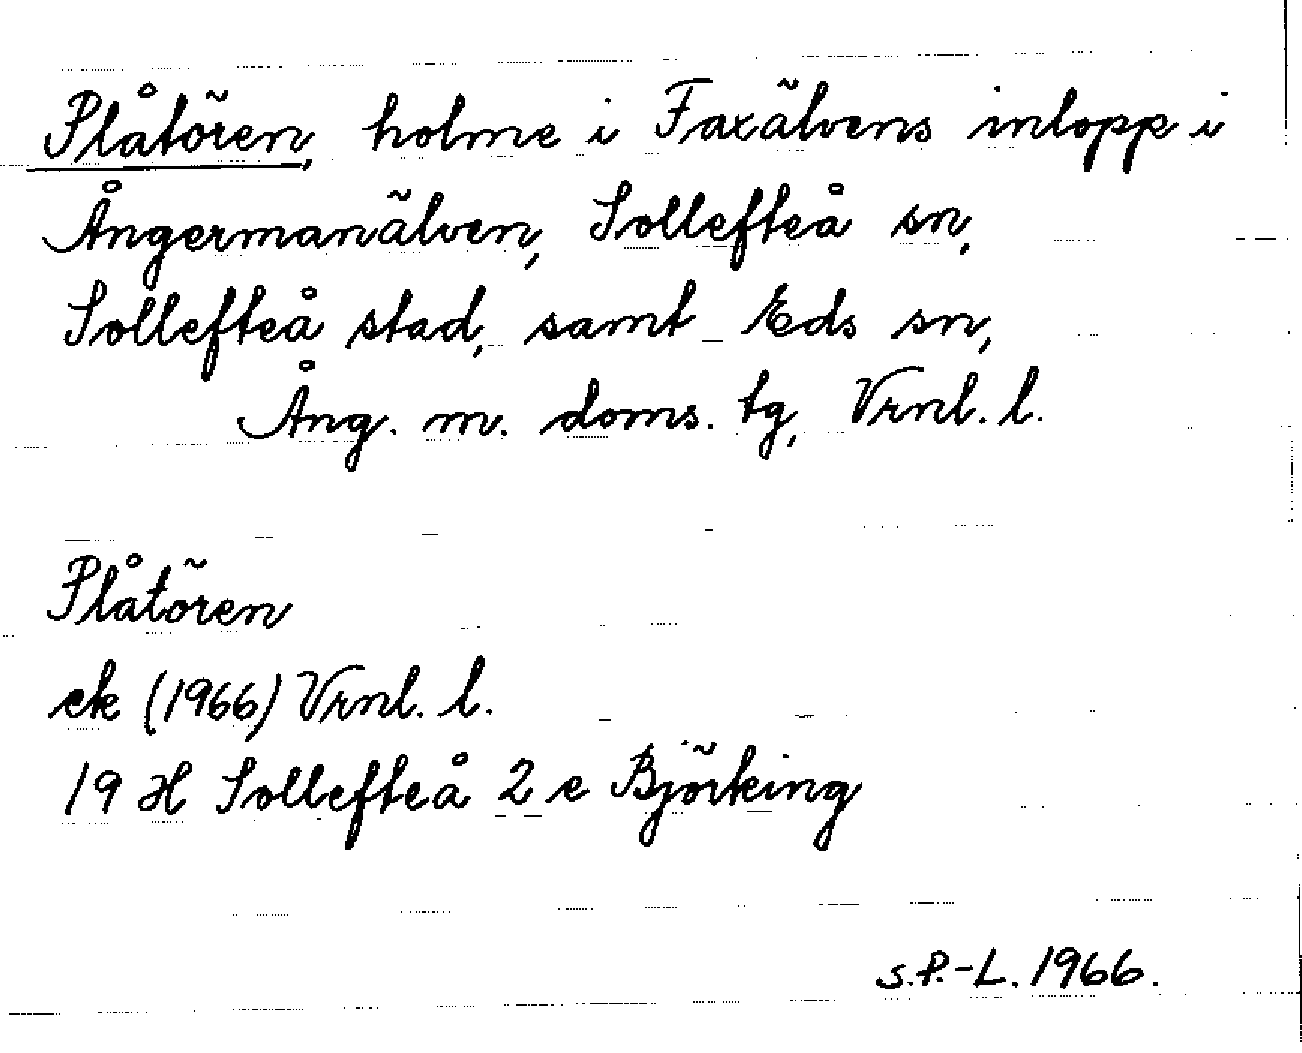 Plåtören, holme i Faxälvens inlopp i
Ångermanälven, Sollefteå sn,
Sollefteå stad, samt Eds sn,
Ång. m. doms. tg, Vrnl. l.
Plåtören
ek (1966) Vrnl. l.
19 H Sollefteå 2 e Björking
s.P.-L. 1966.